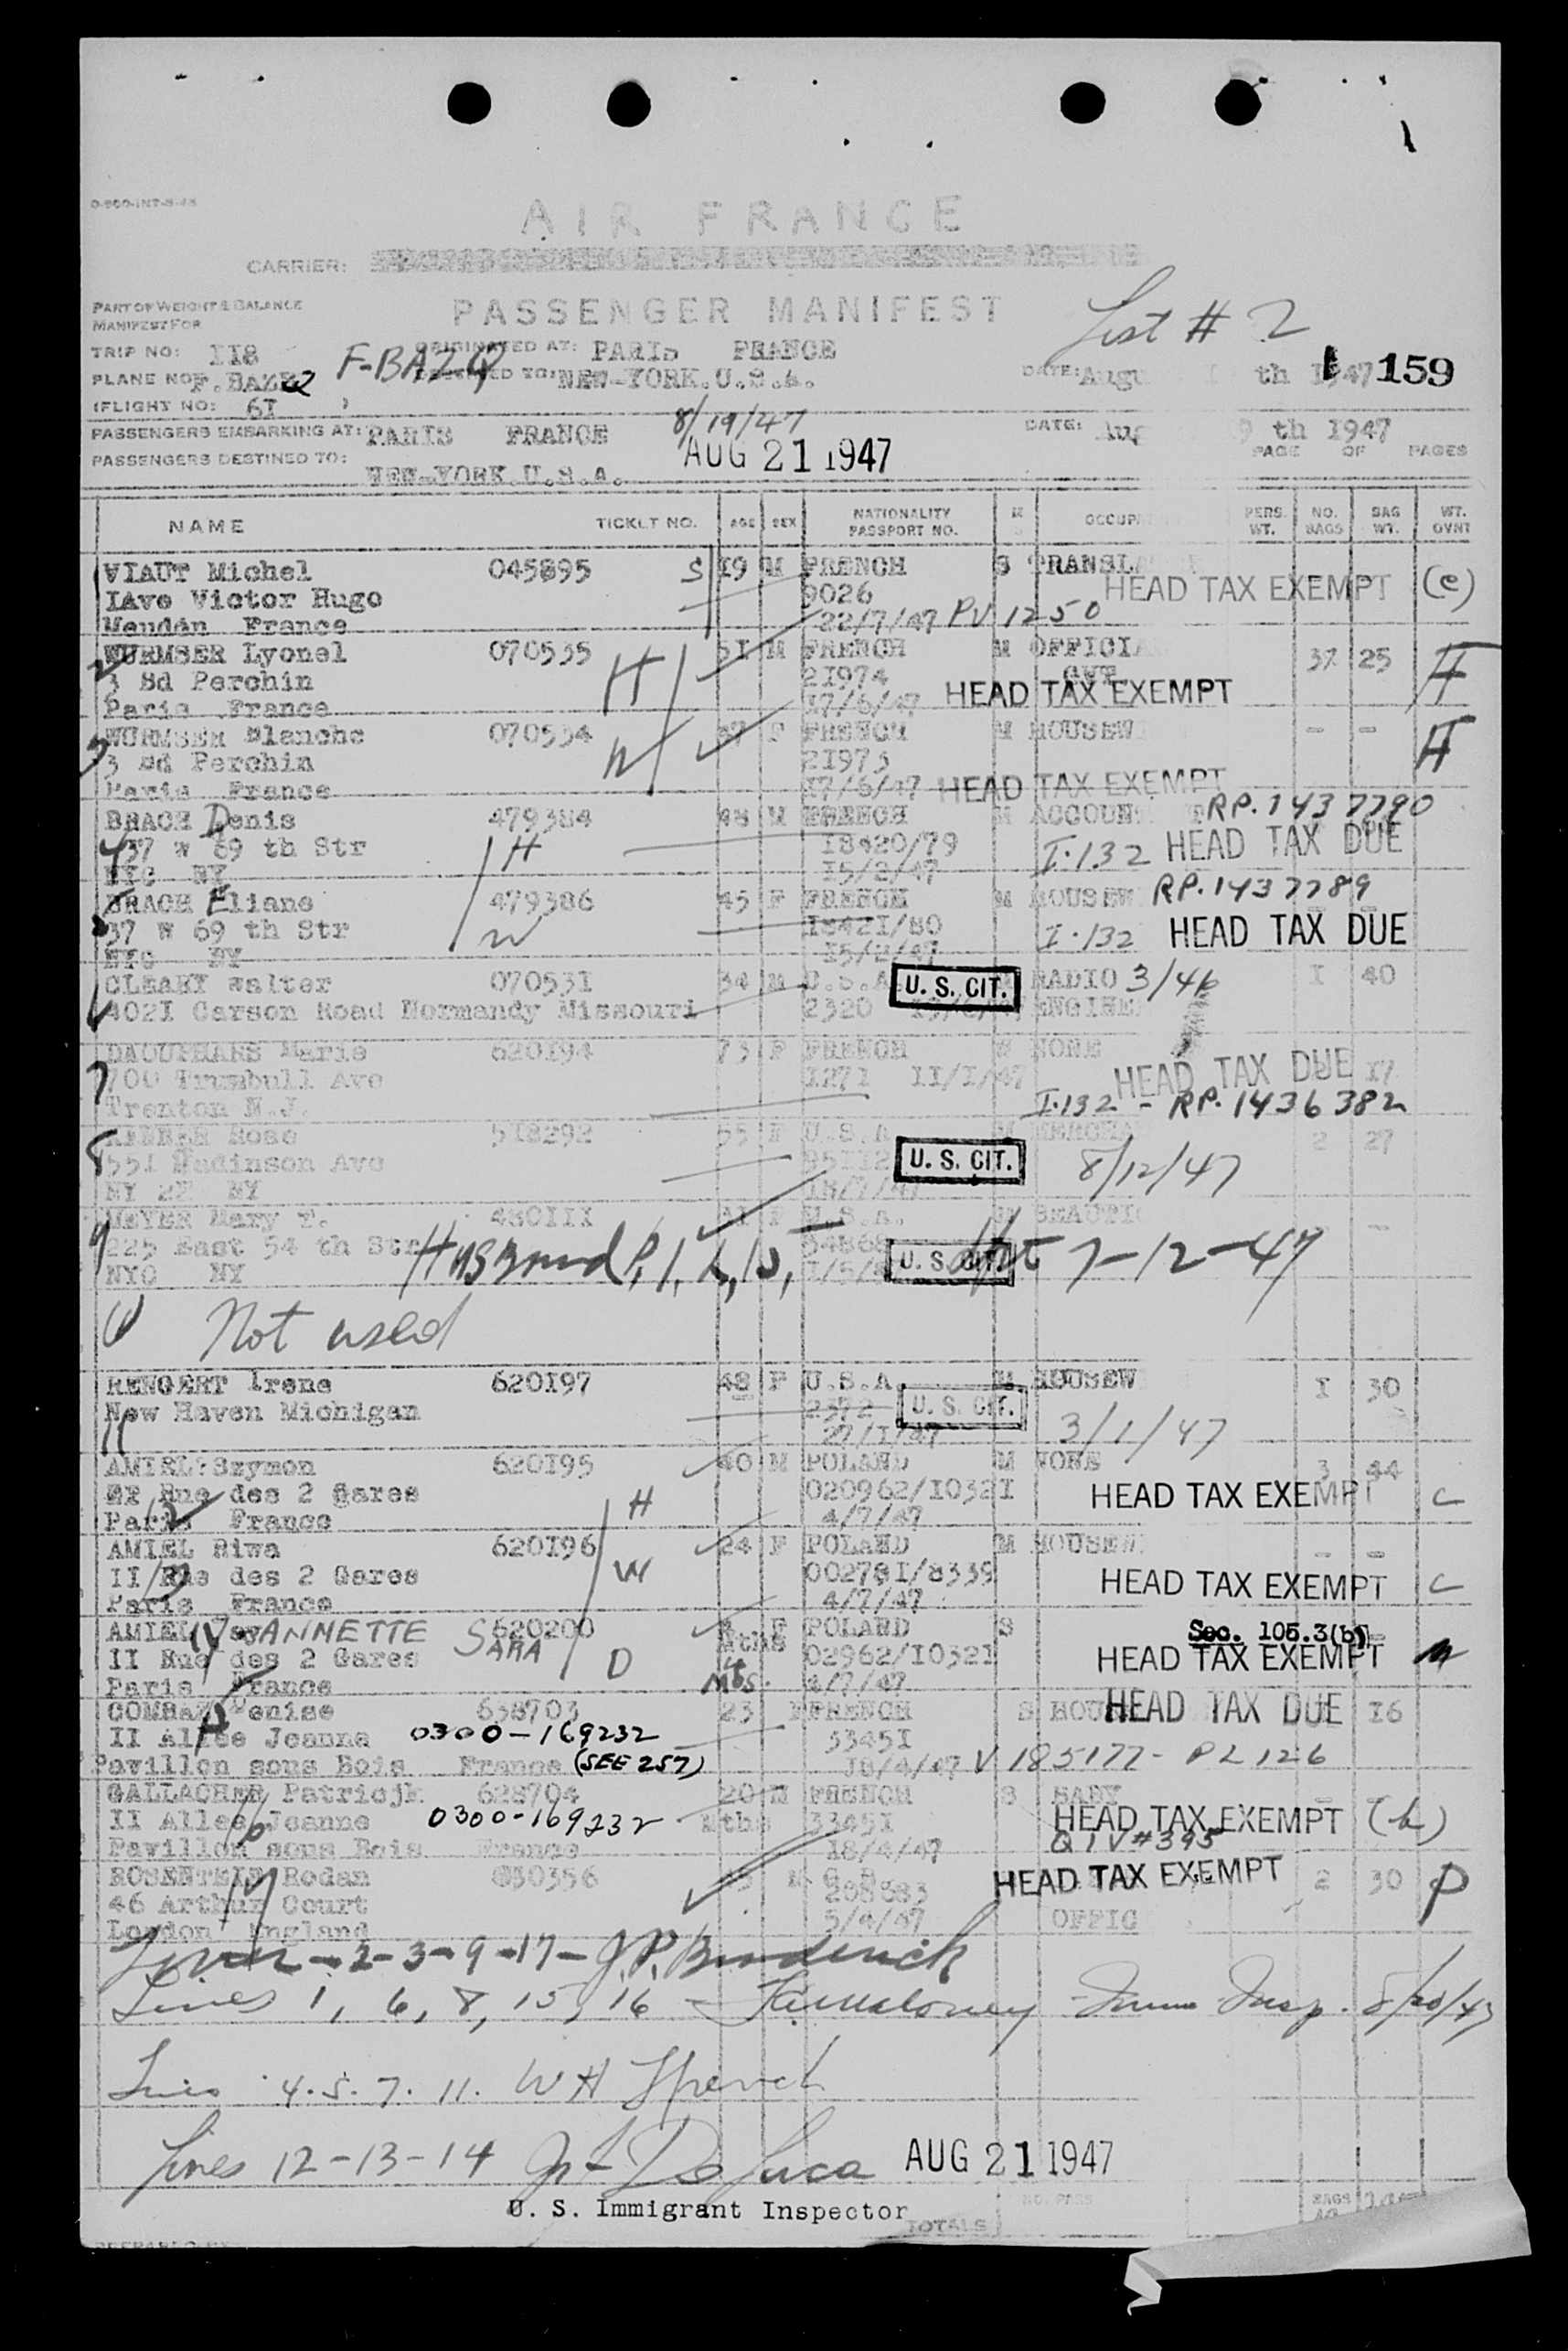 AIR FRANCE
CARRIER:
PART OF WEIGHT & BALANCE
MANIFEST FOR
PASSENGER MANIFEST
List # 2
TRIP NO: II8
ORIGINATED AT: PARIS FRANCE
PLANE NO F.BAZQ F-BAZQ
TO: NEW-YORK.U.S.A.
DATE: Augu th 1947 159
(FLIGHT NO: 6I )
8/19/47
PASSENGERS EMBARKING AT: PARIS FRANCE
AUG 21 1947
DATE: Aug 9 th 1947
PAGE OF PAGES
PASSENGERS DESTINED TO: NEW-YORK.U.S.A.
NAME TICKET NO. AGE SEX NATIONALITY PASSPORT NO. M S OCCUPAT PERS. WT. NO. BAGS BAG WT. WT. OVNT
1 VIAUT Michel 045895 S I9 M FRENCH S TRANSLA
IAve Victor Hugo 9026 HEAD TAX EXEMPT (e)
Meudon France 22/7/47 PV 1250
2 WURMSER Lyonel 070535 H 5I M FRENCH M OFFICIA 37 25 H
3 Bd Perchin 2I974 GVT
Paris France I7/6/47 HEAD TAX EXEMPT
3 WURMSER Blanche 070534 W F FRENCH M HOUSEW - - H
3 Bd Perchin 2I973
Paris France I7/6/47 HEAD TAX EXEMPT
4 BRACH Denis 479384 48 M FRENCH M ACCOUN RP.1437790
37 W 69 th Str H I8420/79 I.132 HEAD TAX DUE
NYC NY I5/2/47
5 BRACH Eliane 479386 45 F FRENCH M HOUSEW RP.1437789
37 W 69 th Str W I842I/80 I.132 HEAD TAX DUE
NYC NY I5/2/47
6 CLEARY Walter 07053I 34 M U.S.A. U. S. CIT. RADIO 3/46 I 40
402I Carson Road Normandy Missouri 2320 ENGINE
7 Marie 620I94 73 F FRENCH NONE I7
700 Trumbull Ave I27I II/I/47 HEAD TAX DUE
Trenton N.J. I.132 - RP. 1436382
8 Rose 5I8292 55 F U.S.A. 2 27
55I Madinson Ave U. S. CIT. 8/12/47
NY 22 NY I8/7/47
9 MEYER Mary T. 480III 4I F U.S.A. BEAUTI -
225 East 54 th Str Husband U. S. CIT. dpt 7-12-47
NYC NY
10 Not used
11 RENGERT Irene 620I97 48 F U.S.A. M HOUSEW I 30
New Haven Michigan 2372 U. S. CIT.
27/I/47 3/1/47
12 AMIEL Szymon 620I95 40 M POLAND M NONE 3 44
II Rue des 2 Gares H 020962/I032I HEAD TAX EXEMPT C
Paris France 4/7/47
13 AMIEL Riwa 620I96 24 F POLAND M HOUSEW - -
II Rue des 2 Gares W 00278I/8339 HEAD TAX EXEMPT C
Paris France 4/7/47
14 AMIEL ANNETTE SARA 620200 F POLAND S Sec. 105.3(b)
II Rue des 2 Gares D Mths 02962/I032I HEAD TAX EXEMPT
Paris France Mts. 4/7/47
15 COMBAZ Denise 638703 23 F FRENCH S HOU HEAD TAX DUE I6
II Allee Jeanne 0300-169232 3345I
Pavillon sous Bois France (SEE 257) I8/4/47 V 185177- PL 126
16 GALLAGHER Patricjk 628704 20 M FRENCH S BABY
II Allee Jeanne 0300-169232 Mths 3345I HEAD TAX EXEMPT (h)
Pavillon sous Bois France I8/4/47 QIV#395
17 ROSENTEIN Rodan 030356 M G.B. HEAD TAX EXEMPT 2 30 P
46 Arthur Court 208683
London England 5/4/47 OFFIC
Lines - 2-3-9-17- J.P. Broderick
Lines 1, 6, 8, 15, 16 - Maloney Imm Insp. 8/20/47
Lines 4.5.7.11. W H French
Lines 12-13-14 De Luca AUG 21 1947
U. S. Immigrant Inspector
TOTALS NO. PASS BAGS